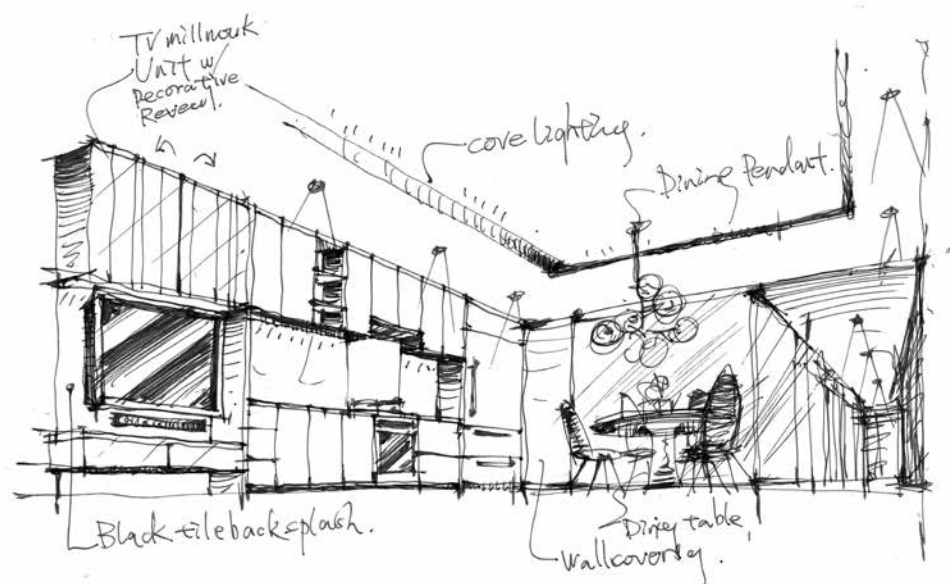 TV millwork
Unit w
Decorative
Reveal.
cove lighting.
Dining Pendant.
Black tile backsplash.
Dining table
Wallcovering.